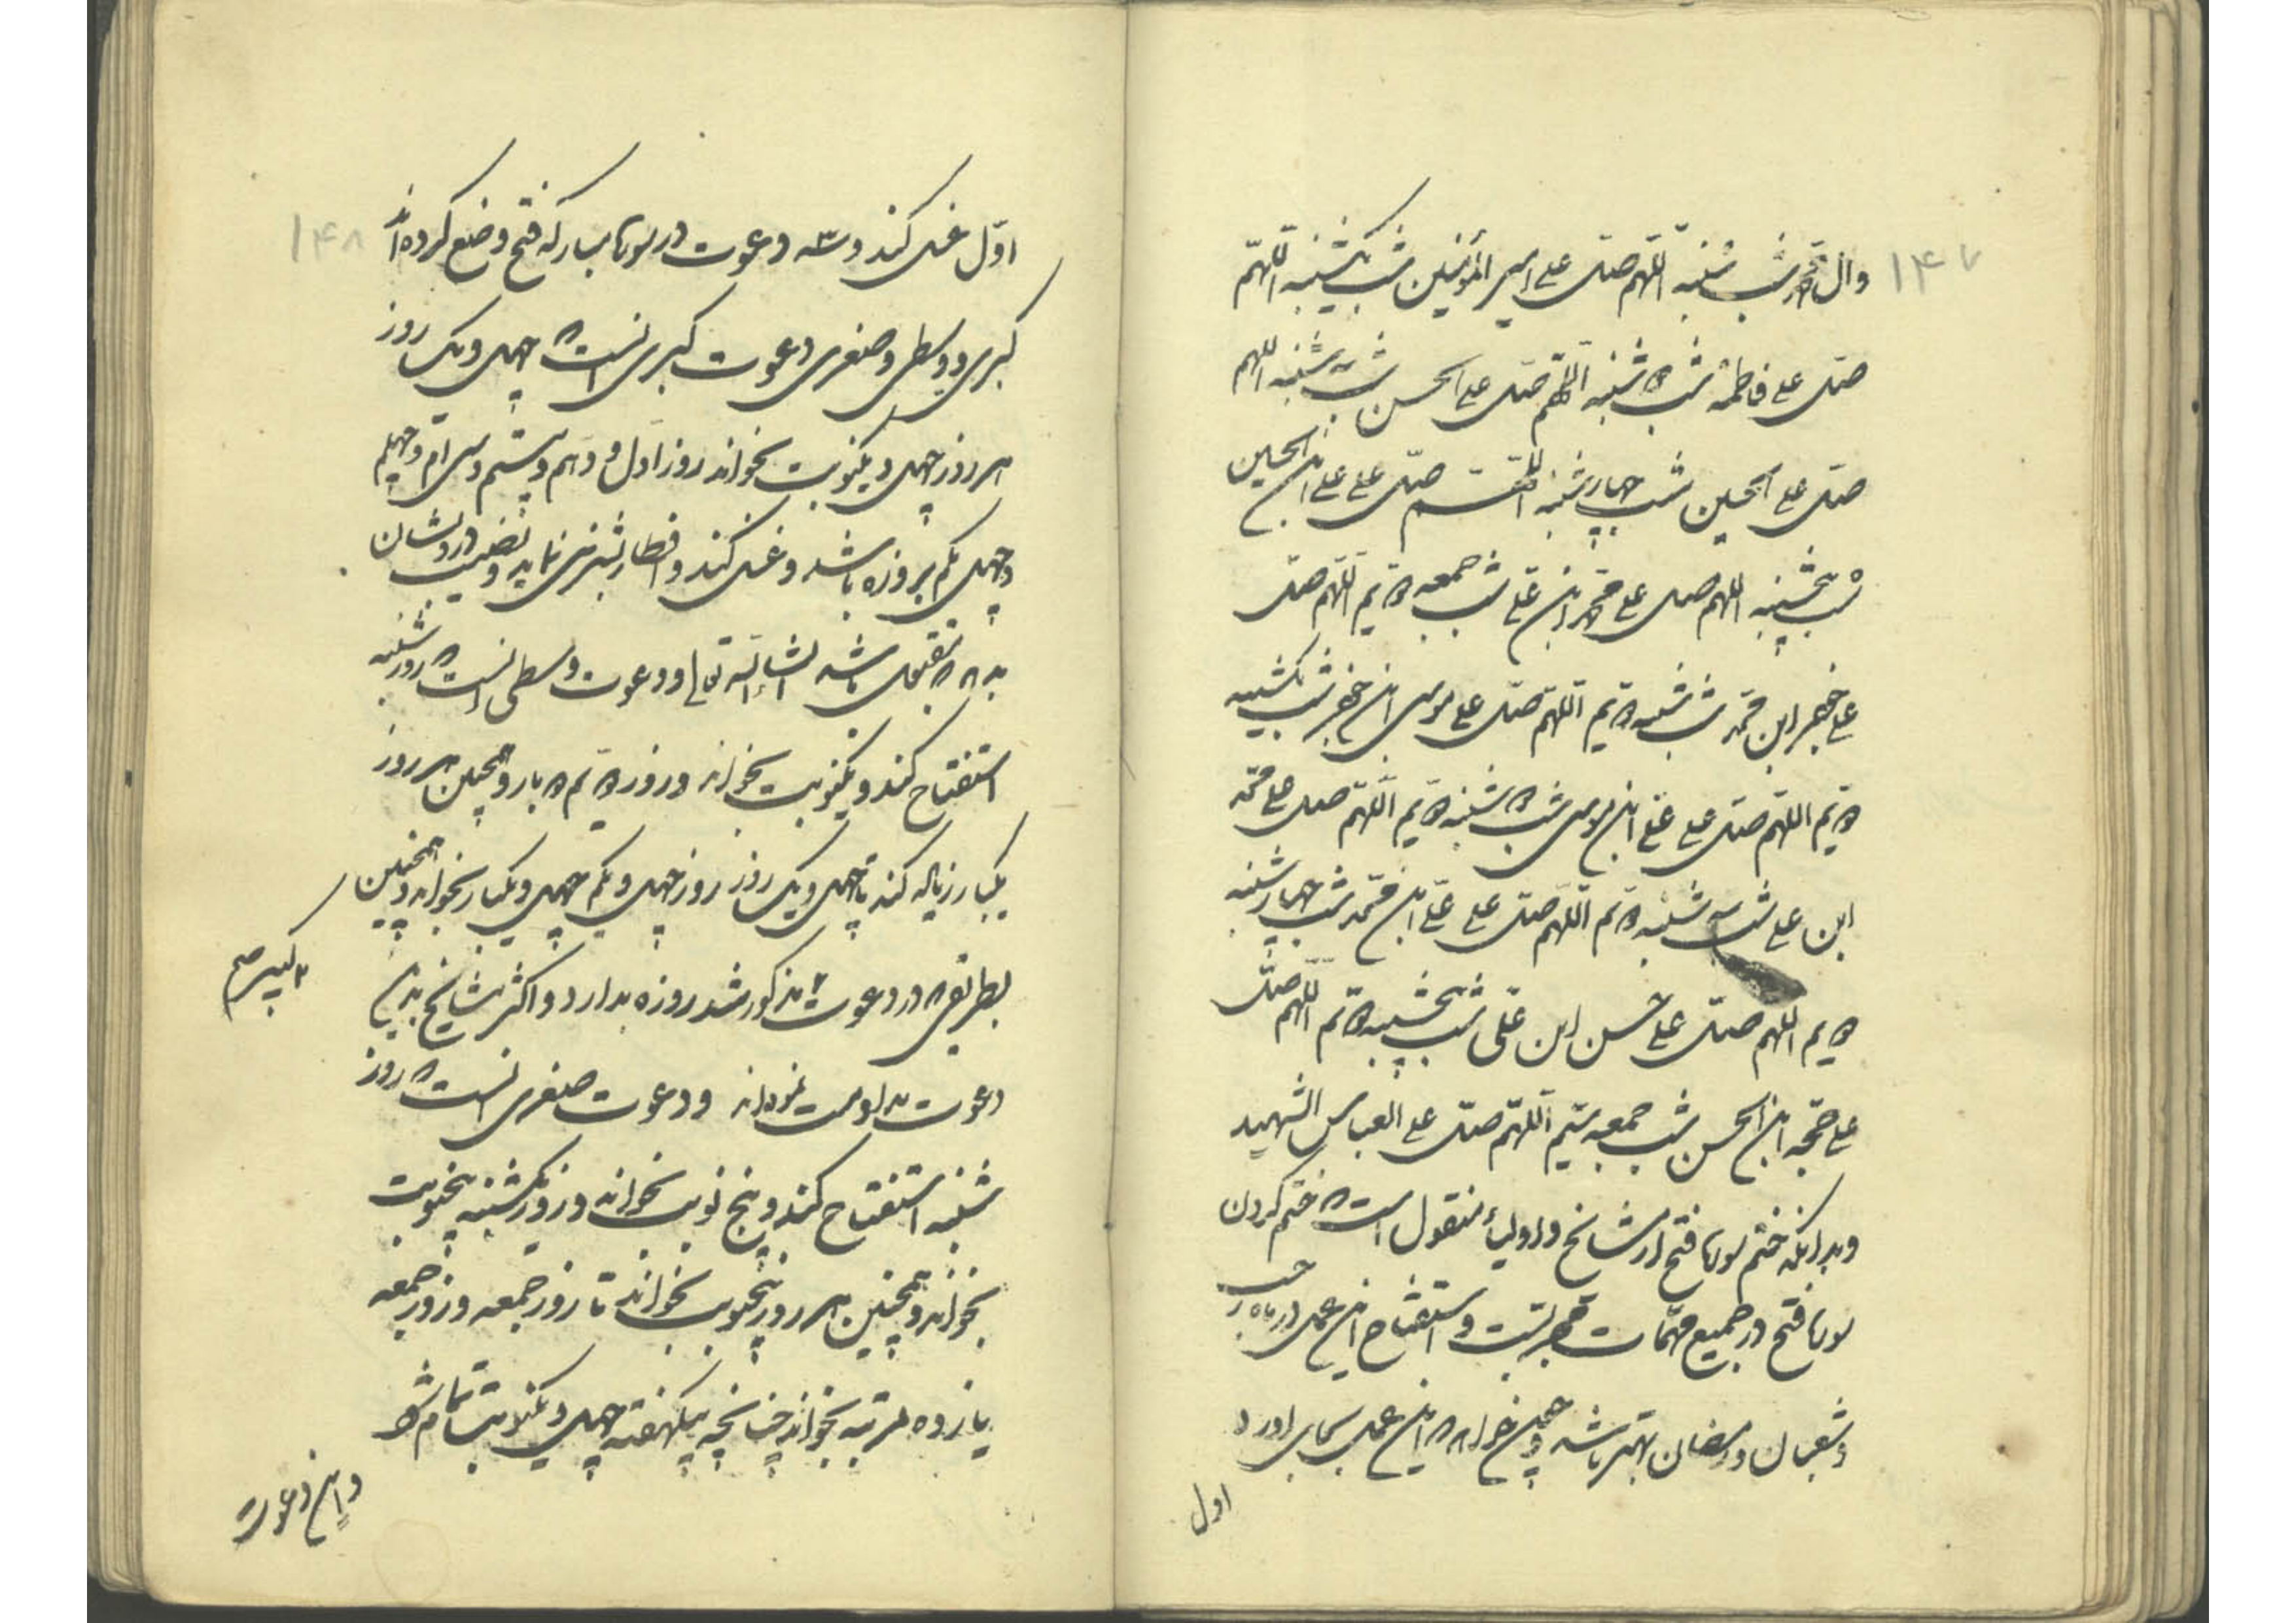 ۱۴۷
وال محمد شب شنبه اللهم صل علی امیر المؤمنین شب یکشنبه اللهم
صل علی فاطمه شب ۲ شنبه اللهم صل علی الحسن شب سه شنبه اللهم
صل علی الحسین شب چهارشنبه اللهم صل علی علی ابن الحسین
شب پنجشنبه اللهم صل علی محمد ابن علی شب جمعه ۲ یم اللهم صل
علی جعفر ابن محمد شب شنبه ۲ یم اللهم صل علی موسی ابن جعفر شب یکشنبه
۲ یم اللهم صل علی علی ابن موسی شب ۲ شنبه ۲ یم اللهم صل علی محمد
ابن علی شب سه شنبه ۲ یم اللهم صل علی علی ابن محمد شب چهارشنبه
۲ یم اللهم صل علی حسن ابن علی شب پنجشنبه ۲ یم اللهم صل
علی حجه ابن الحسن شب جمعه سیم اللهم صل علی العباس الشهید
وبدانکه ختم سوره فتح از مشایخ و اولیاء منقول است که ختم کردن
سوره فتح در جمیع مهمات مجربست و استفتاح این عمل در ماه رجب
و شعبان و رمضان بهتر باشد و چون خواهد که این عمل بجای اورد
اول
۱۴۸
اول غسل کند و سه دعوت در سوره مبارکه فتح وضع کرده اند
کبری و وسطی و صغری دعوت کبری انست که چهل ویک روز
هر روز چهل و یکنوبت بخواند روز اول و دهم و بیستم و سی ام و چهلم
و چهل یکم بروزه باشد و غسل کند و افطار بشیرینی نماید و نصیب درویشان
بدهد که مقبول باشد انشاء الله تعالی و دعوت وسطی انست که روز شنبه
استفتاح کند و یکنوبت بخواند و روز ۲ یم ۲ بار و همچنین هر روز
یکبار زیاده کند تا چهل ویک روز روز چهل و یکم چهل و یکبار بخواند و همچنین
بطریقی که در دعوت مذکور شد روزه بدارد و اکثر مشایخ بدین
دعوت مداومت نموده اند و دعوت صغری انست که روز
شنبه استفتاح کند و پنج نوبت بخواند و روز یکشنبه پنجنوبت
بخواند و همچنین هر روز پنجنوبت بخواند تا روز جمعه و روز جمعه
یازده مرتبه بخواند چنانچه بیکهفته چهل و یکنوبت تمام شود
و این دعوت